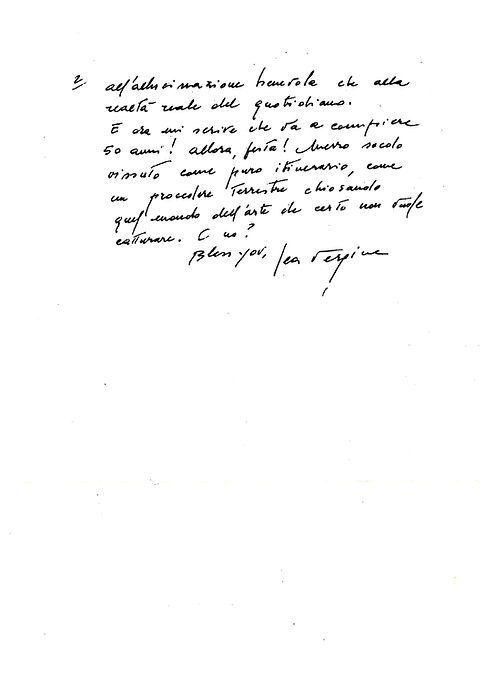 2
all'allucinazione benevola che alla
realtà reale del quotidiano.
E ora mi scrive che va a compiere
50 anni! Allora, festa! Mezzo secolo
vissuto come puro itinerario, come
un procedere terrestre chiosando
quel mondo dell'arte che certo non vuole
catturare. O no?
Bless you, Lea Vergine